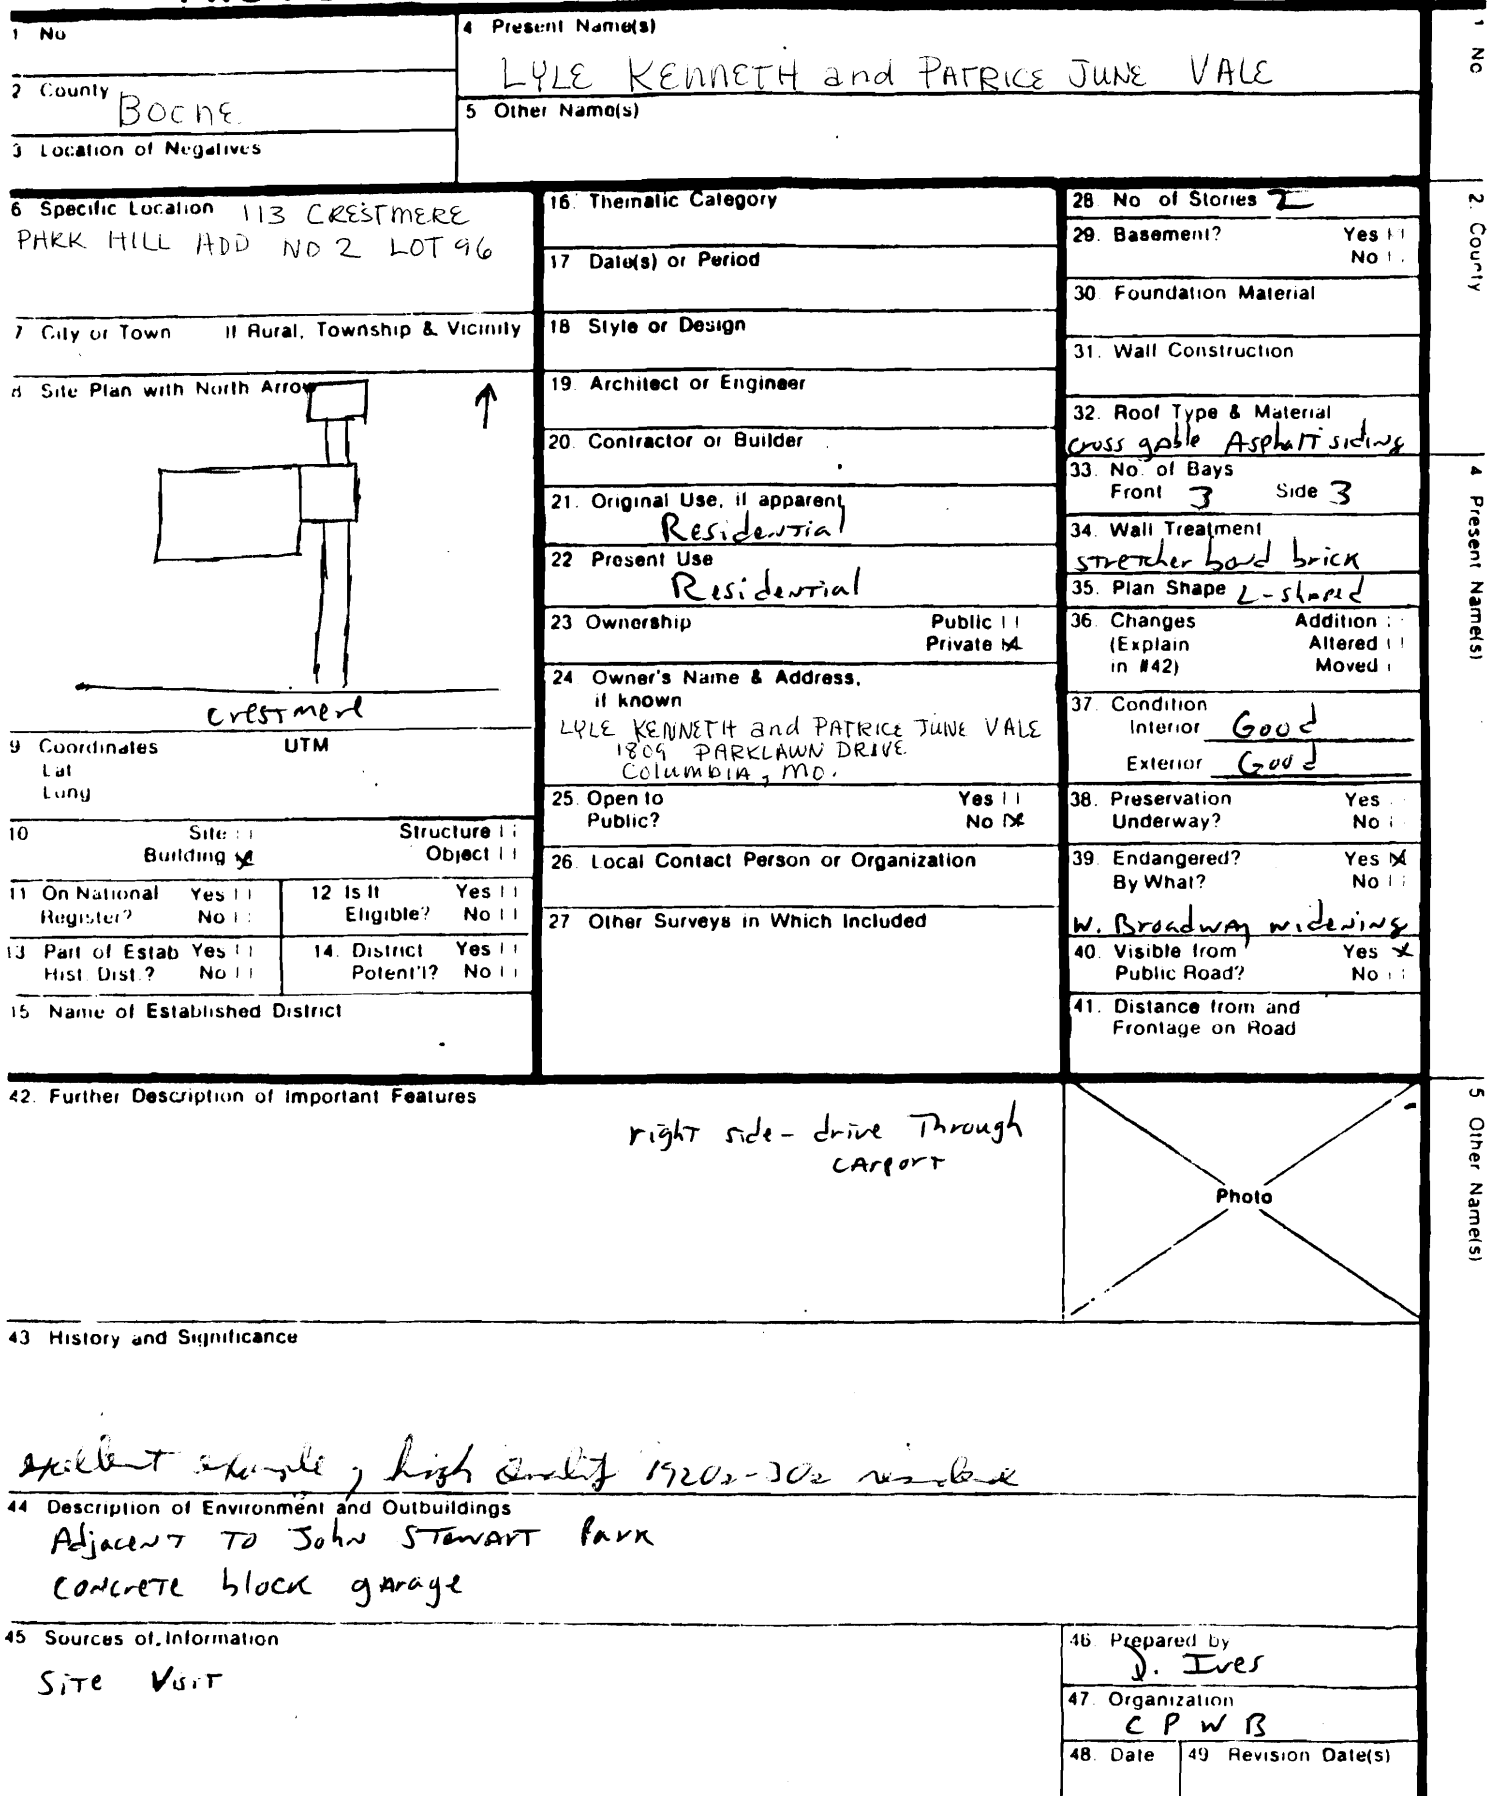 1 No
4 Present Name(s)
LYLE KENNETH and PATRICE JUNE VALE
2 County
BOONE
5 Other Name(s)
3 Location of Negatives
6 Specific Location 113 CRESTMERE
PARK HILL ADD NO 2 LOT 96
7 City or Town If Rural, Township & Vicinity
8 Site Plan with North Arrow
crestmere
9 Coordinates UTM
Lat
Long
10 Site Structure
Building Object
11 On National Register? Yes No
12 Is It Eligible? Yes No
13 Part of Estab Hist. Dist.? Yes No
14. District Potent'l? Yes No
15 Name of Established District
16. Thematic Category
17 Date(s) or Period
18 Style or Design
19. Architect or Engineer
20. Contractor or Builder
21. Original Use, if apparent
Residential
22 Present Use
Residential
23 Ownership Public
Private
24 Owner's Name & Address,
if known
LYLE KENNETH and PATRICE JUNE VALE
1809 PARKLAWN DRIVE
Columbia, MO.
25. Open to Yes
Public? No
26. Local Contact Person or Organization
27 Other Surveys in Which Included
28. No of Stories 2
29. Basement? Yes
No
30. Foundation Material
31. Wall Construction
32. Roof Type & Material
cross gable Asphalt siding
33. No. of Bays
Front 3 Side 3
34. Wall Treatment
stretcher bond brick
35. Plan Shape L-shaped
36. Changes Addition
(Explain Altered
in #42) Moved
37. Condition
Interior Good
Exterior Good
38. Preservation Yes
Underway? No
39. Endangered? Yes
By What? No
W. Broadway widening
40. Visible from Yes
Public Road? No
41. Distance from and
Frontage on Road
42. Further Description of Important Features
right side - drive Through
carport
Photo
43 History and Significance
excellent example, high quality 1920s-30s residence
44 Description of Environment and Outbuildings
Adjacent TO John STewart Park
Concrete block garage
45 Sources of Information
Site Visit
46. Prepared by
D. Ives
47. Organization
C P W B
48. Date
49 Revision Date(s)
1 No
2. County
4 Present Name(s)
5 Other Name(s)